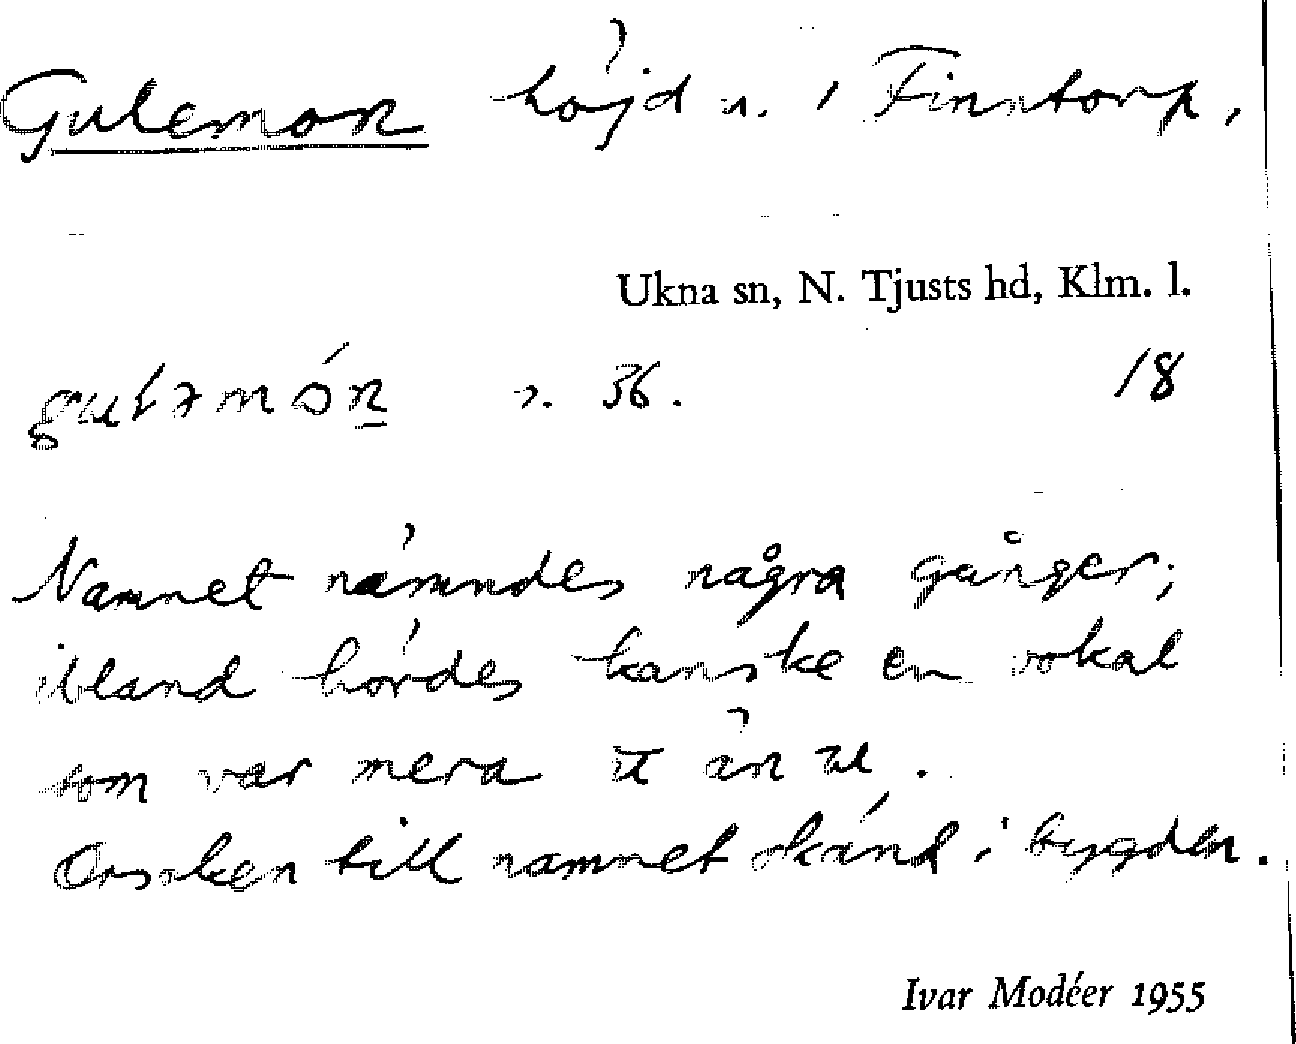 Gulemon höjd n. i Finntorp,
Ukna sn, N. Tjusts hd, Klm. l.
s. 36. 18
Namnet nämndes några gånger;
ibland hördes kanske en vokal
som var mera än
Orsaken till namnet okänd i bygden.
Ivar Modéer 1955